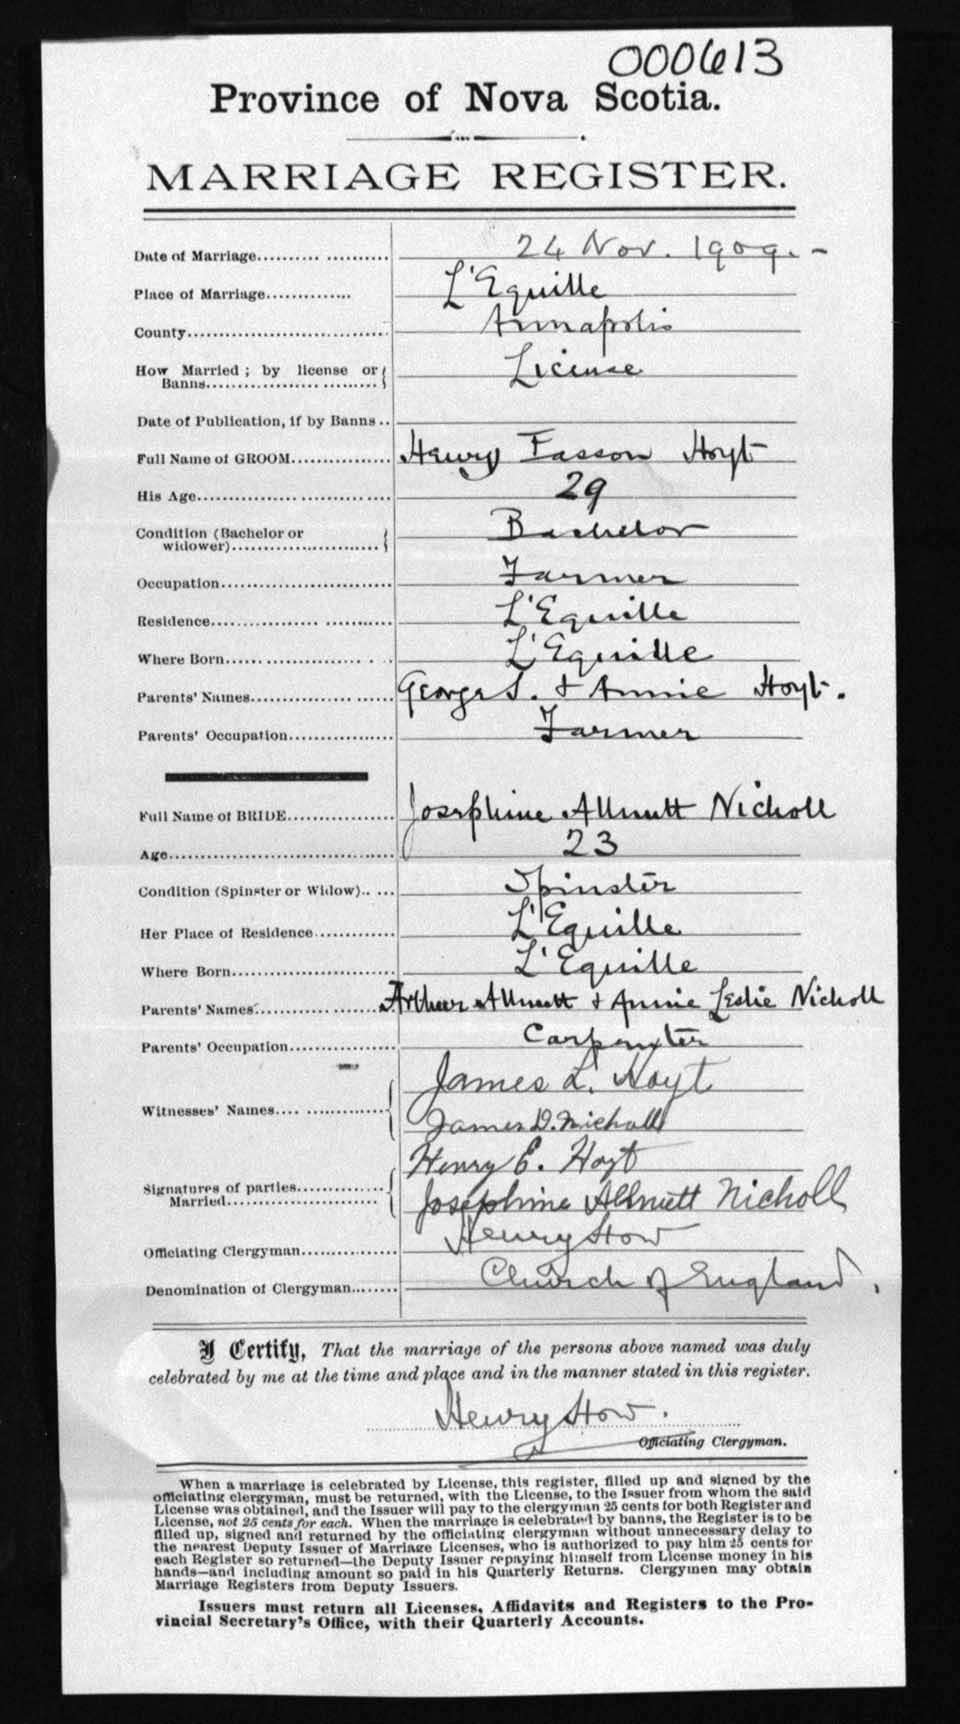 000613
Province of Nova Scotia.
MARRIAGE REGISTER.
Date of Marriage.......... ........... 24 Nov. 1909. -
Place of Marriage.............. L'Equille
County................................. Annapolis
How Married ; by license or
Banns.................... .......... License
Date of Publication, if by Banns ..
Full Name of GROOM................ Henry Easson Hoyt
His Age.................. ................ 29
Condition (Bachelor or
widower)......................... Bachelor
Occupation............................ Farmer
Residence................. ........... L'Equille
Where Born...... ................. . . L'Equille
Parents' Names........................ George S. & Annie Hoyt.
Parents' Occupation................. Farmer
Full Name of BRIDE.................. Josephine Allnutt Nicholl
Age...................................... 23
Condition (Spinster or Widow).. ... Spinster
Her Place of Residence............. L'Equille
Where Born............................ L'Equille
Parents' Names........................ Arthur Allnutt & Annie Leslie Nicholl
Parents' Occupation.................. Carpenter
James L. Hoyt
Witnesses' Names.... ..............
James D. Nicholl
Henry E. Hoyt
Signatures of parties...............
Married......................... Josephine Allnutt Nicholl
Officiating Clergyman................ Henry How
Denomination of Clergyman........ Church of England.
I Certify, That the marriage of the persons above named was duly
celebrated by me at the time and place and in the manner stated in this register.
Henry How.
Officiating Clergyman.
When a marriage is celebrated by License, this register, filled up and signed by the
officiating clergyman, must be returned, with the License, to the Issuer from whom the said
License was obtained, and the Issuer will pay to the clergyman 25 cents for both Register and
License, not 25 cents for each. When the marriage is celebrated by banns, the Register is to be
filled up, signed and returned by the officiating clergyman without unnecessary delay to
the nearest Deputy Issuer of Marriage Licenses, who is authorized to pay him 25 cents for
each Register so returned—the Deputy Issuer repaying himself from License money in his
hands—and including amount so paid in his Quarterly Returns. Clergymen may obtain
Marriage Registers from Deputy Issuers.
Issuers must return all Licenses, Affidavits and Registers to the Pro-
vincial Secretary's Office, with their Quarterly Accounts.